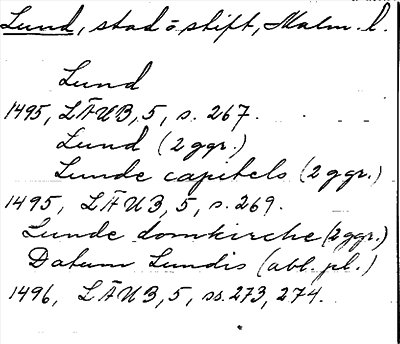 Lund, stad o stift, Malm. l.
Lund
1495, LÄUB, 5, s. 267.
Lund (2 ggr.)
Lunde capitels (2 ggr.)
1495, LÄUB, 5, s. 269.
Lunde domkirche (2 ggr.)
Datum Lundis (abl. pl.)
1496, LÄUB, 5, ss. 273, 274.